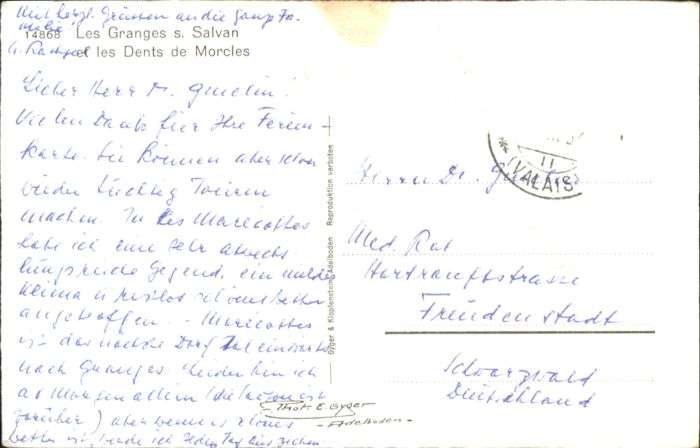 Mit herzl. Grüssen an die ganze Fa.
14868 Les Granges s. Salvan
et les Dents de Morcles
Lieber Herr Dr. Gmelin!
Vielen Dank für Ihre Ferien-
karte. Sie können aber schon
wieder tüchtig Touren
machen. In Les Marecottes
habe ich eine sehr abwechs
lungsreiche Gegend, ein mildes
Klima u. schönes Wetter
angetroffen. - Marecottes
ist das nächste Dorf taleinwärts
nach Granges. Leider bin ich
ab Morgen allein (die
) aber wenn es schönes
Wetter ist, werde ich jeden Tag ausziehen
Gyger & Klopfenstein, Adelboden Reproduktion verboten
(VALAIS)
11
Herrn Dr. Gmelin
Med. Rat
Hartranftstrasse
Freudenstadt
Schwarzwald
Deutschland
Phot. E. Gyger
- Adelboden -